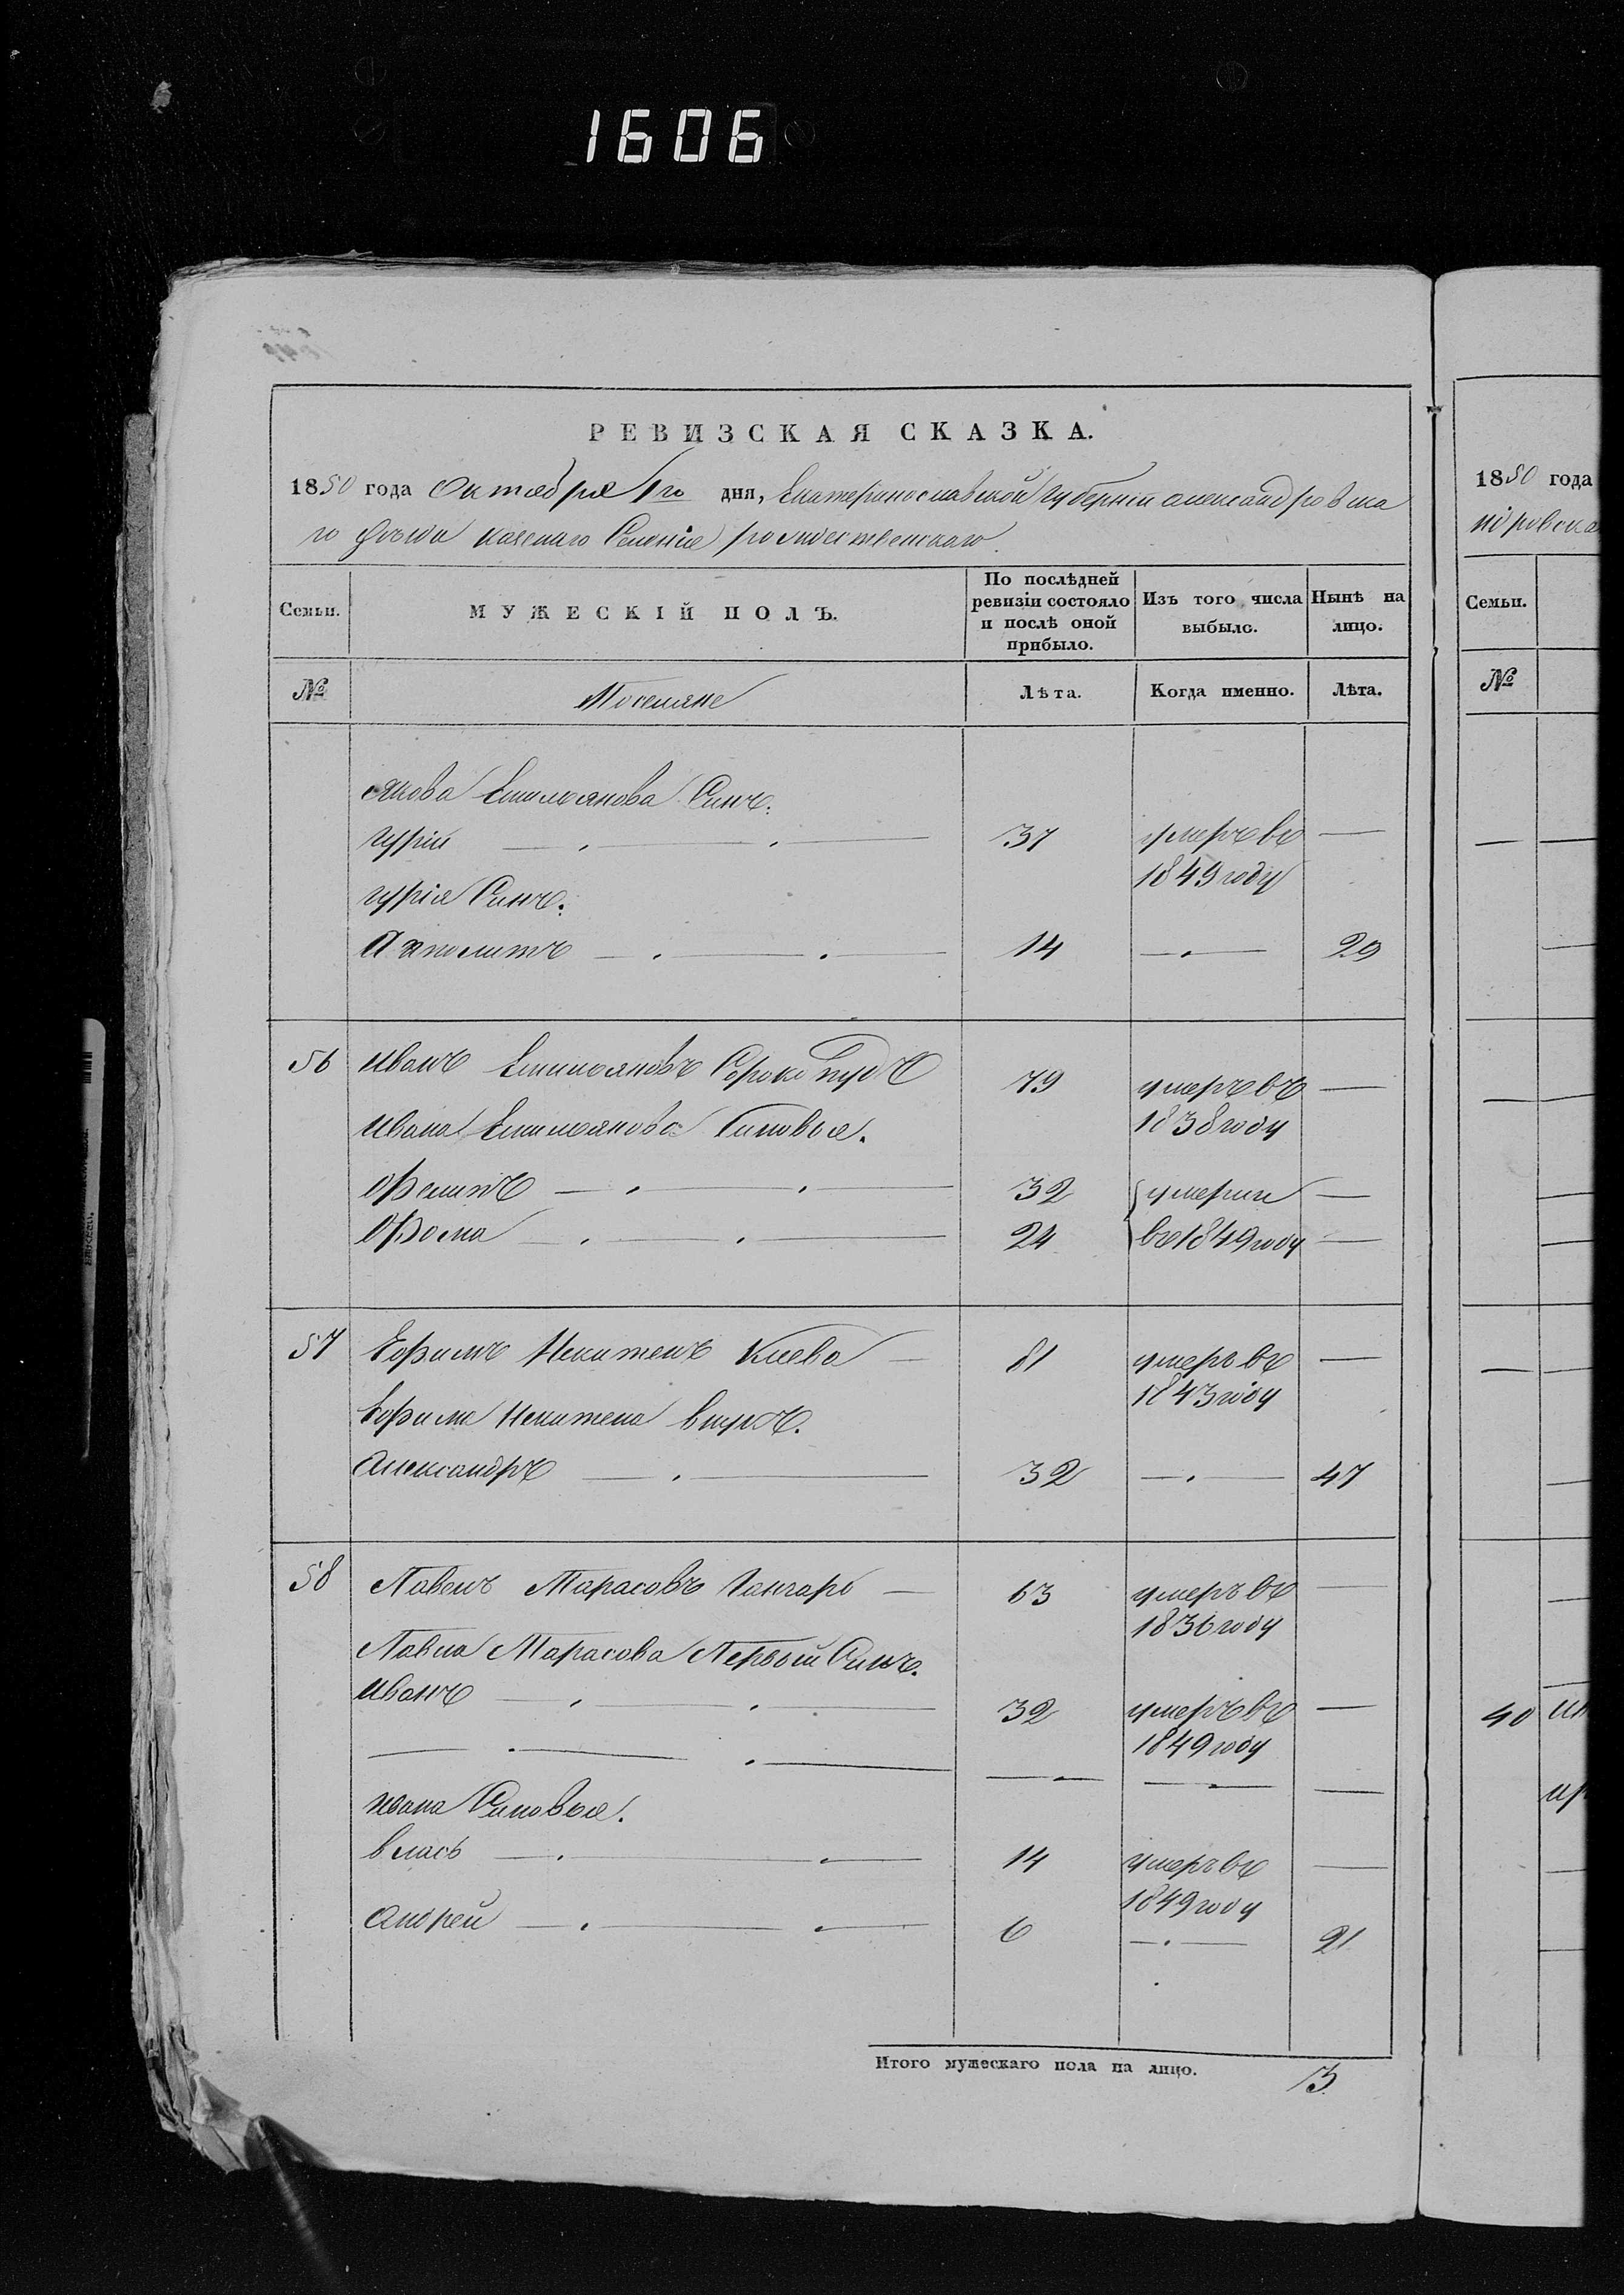 1606
РЕВИЗСКАЯ СКАЗКА.
1850 года Октября 1го дня, Екатеринославской губерніи александровска
го уѣзда казенаго Селенія рождественскаго.
Семьи.
МУЖЕСКІЙ ПОЛЪ.
По послѣдней ревизіи состояло и послѣ оной прибыло.
Изъ того числа выбыло.
Нынѣ на лицо.
№
Поселяне
Лѣта.
Когда именно.
Лѣта.
Якова Емильянова Синъ:
гурій 37 умеръ въ —
1849 году
гурія Синъ:
Апполитъ 14 — 29
56 Иванъ Емильяновъ Сорокопудъ 79 умеръ въ —
1838 году
Ивана Емильянова Синовья.
Филипъ 32 умерли —
Фома 24 въ 1849 году —
57 Ефимъ Никитенъ Киева — 81 умеръ въ —
1843 году
Ефима Никитена внукъ.
Александръ 32 — 47
58 Павелъ Тарасовъ Ганчаръ — 63 умеръ въ
1836 году
Павла Тарасова Первый Синъ.
Иванъ 32 умеръ въ —
1849 году
ивана Синовья.
власъ 14 умеръ въ —
1849 году
Андрей 6 — 21
Итого мужескаго пола на лицо. 3.
1850 года
Семьи.
№
40